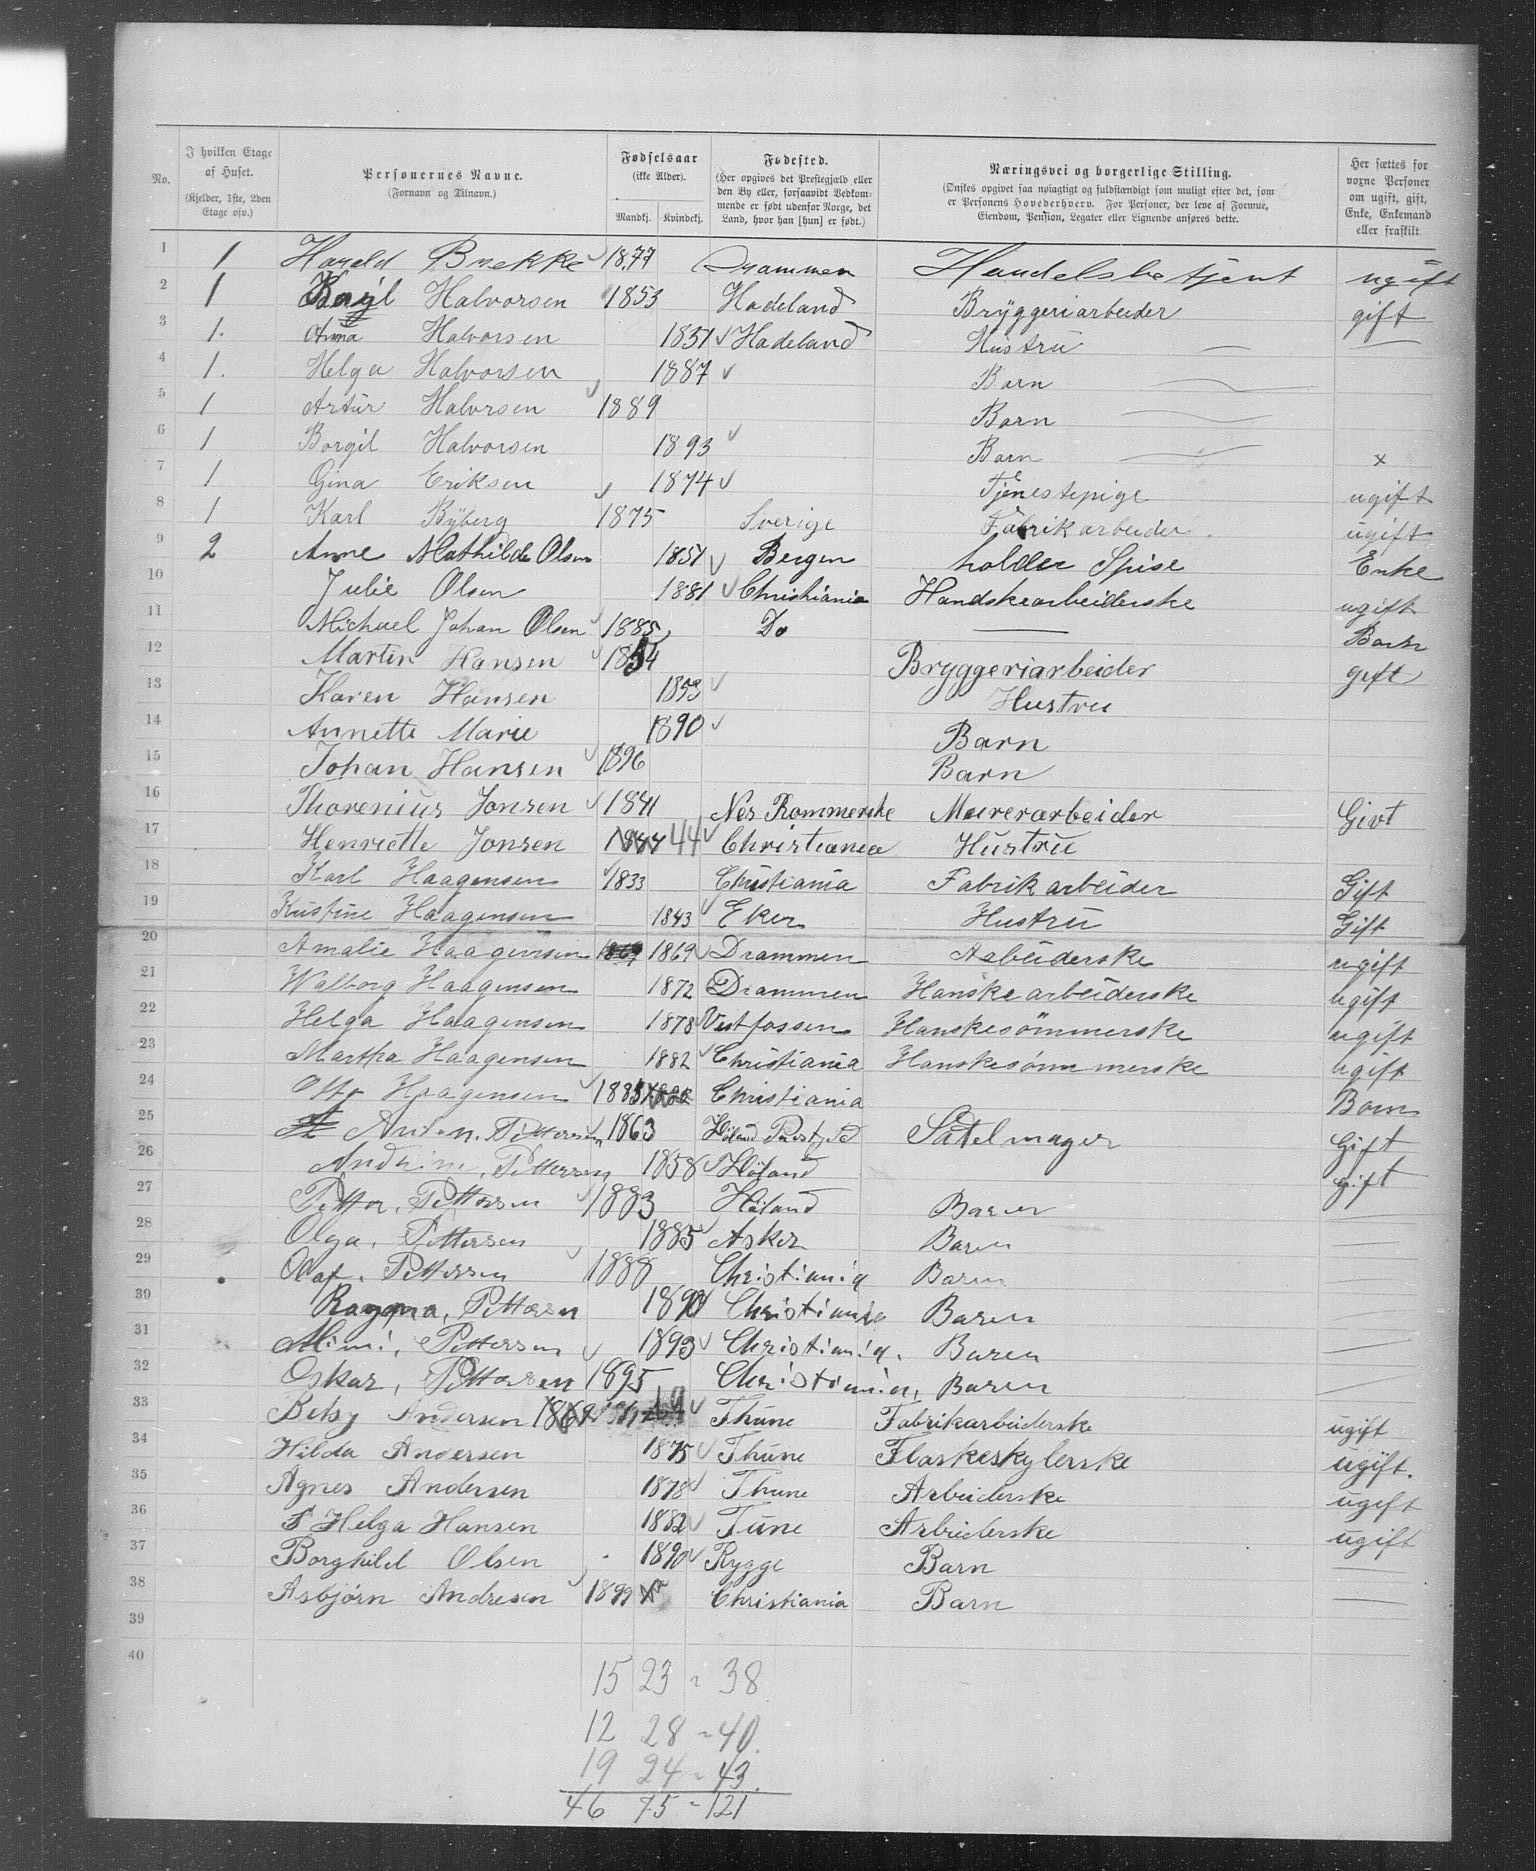 No.
I hvilken Etage af Huset.
(Kjelder, 1ste, 2den Etage osv.)
Personernes Navne.
(Fornavn og Tilnavn.)
Fødselsaar
(ikke Alder).
Mandkj. Kvindekj.
Fødested.
(Her opgives det Prestegjæld eller den By eller, forsaavidt Vedkommende er født udenfor Norge, det Land, hvor han [hun] er født.)
Næringsvei og borgerlige Stilling.
(Ønskes opgivet saa nøiagtigt og fuldstændigt som muligt efter det, som er Personens Hovederhverv. For Personer, der leve af Formue, Eiendom, Pension, Legater eller Lignende anføres dette.
Her sættes for voxne Personer om ugift, gift, Enke, Enkemand eller fraskilt.
1 1 Harald Brekke 1877 Drammen Handelsbetjent ugift
2 1 Halvorsen 1853 Hadeland Bryggeriarbeider gift
3 1. Anna Halvorsen 1851 Hadeland Hustru —
4 1. Helga Halvorsen 1887 Barn —
5 1 Artur Halvrsen 1889 Barn —
6 1 Borgil Halvorsen 1893 Barn — x
7 1 Gina Eriksen 1874 Tjenestepige ugift
8 1 Karl Byberg 1875 Sverige Fabrikarbeider. ugift
9 2 Anne Mathilde Olsen 1851 Bergen holder Spise Enke
10 Julie Olsen 1881 Christiania Handskearbeiderske ugift
11 Michael Johan Olsen 1885 Do — Barn
12 Martin Hansen 1854 Bryggeriarbeider gift
13 Karen Hansen 1853 Hustru
14 Annette Marie 1890 Barn
15 Johan Hansen 1896 Barn
16 Thorenius Jonsen 1841 Nes Rommerike Murerarbeider Givt
17 Henriette Jonsen 1844 44 Christiania Hustru
18 Karl Haagensen 1833 Christiania Fabrikarbeider Gift
19 Kristine Haagensen 1843 Eker Hustru Gift
20 Amalie Haagensen 1869 1869 Drammen Arbeiderske ugift
21 Walborg Haagensen 1872 Drammen Hanskearbeiderske ugift
22 Helga Haagensen 1878 Vestfossen Hanskesömmerske ugift
23 Martha Haagensen 1882 Christiania Hanskesømmerske ugift
24 Otto Haagensen 1885 Christiania Barn
25 Anton. Pettersen 1863 Høland Prestgjeld Satelmager Gift
26 Andrine, Pettersen 1858 Høland gift
27 Petter, Pettersen 1883 Høland Baren
28 Olga, Pettersen 1885 Asker Baren
29 Olaf, Pettersen 1888 Christiania Baren
30 Ragna, Pettersen 1890 Christiania Baren
31 Mimi, Pettersen 1893 Christiania. Baren
32 Oskar, Pettersen 1895 Christiania, Baren
33 Betsy Andersen 1869 Thune Fabrikarbeiderske ugift
34 Hilda Andersen 1875 Thune Flaskeskylerske ugift.
35 Agnes Andersen 1878 Thune Arbeiderske ugift
36 Helga Hansen 1882 Tune Arbeiderske ugift
37 Borghild Olsen 1890 Rygge Barn
38 Asbjørn Andresen 1899 Christiania Barn
39
40
15 23 = 38
12 28 = 40.
19 24 = 43.
46 75 = 121